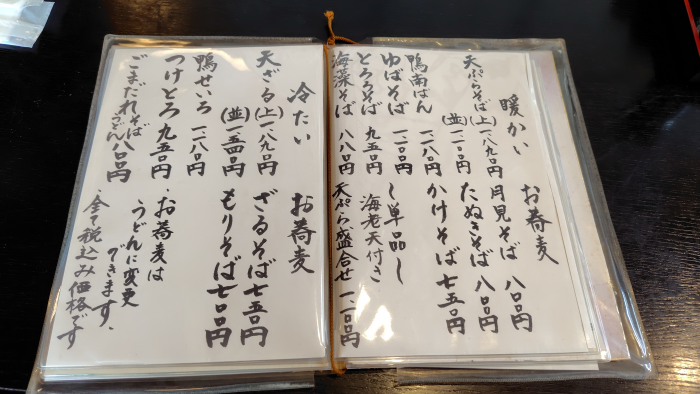 暖かい お蕎麦
天ぷらそば(上)一、八九〇円
(並)
鴨南ばん 一、二八〇円
ゆばそば 一、一〇〇円
とろろそば 九五〇円
海藻そば 八八〇円
月見そば 八〇〇円
たぬきそば 八〇〇円
かけそば 七五〇円
〜単品〜
海老天付き
天ぷら盛合せ 一、一〇〇円
冷たい お蕎麦
天ざる(上)一、八九〇円
(並)一、五四〇円
鴨せいろ 一、二八〇円
つけとろ 九五〇円
ごまだれそばうどん 八〇〇円
ざるそば 七五〇円
もりそば 七〇〇円
・お蕎麦は
うどんに変更
できます。
・全て税込み価格です